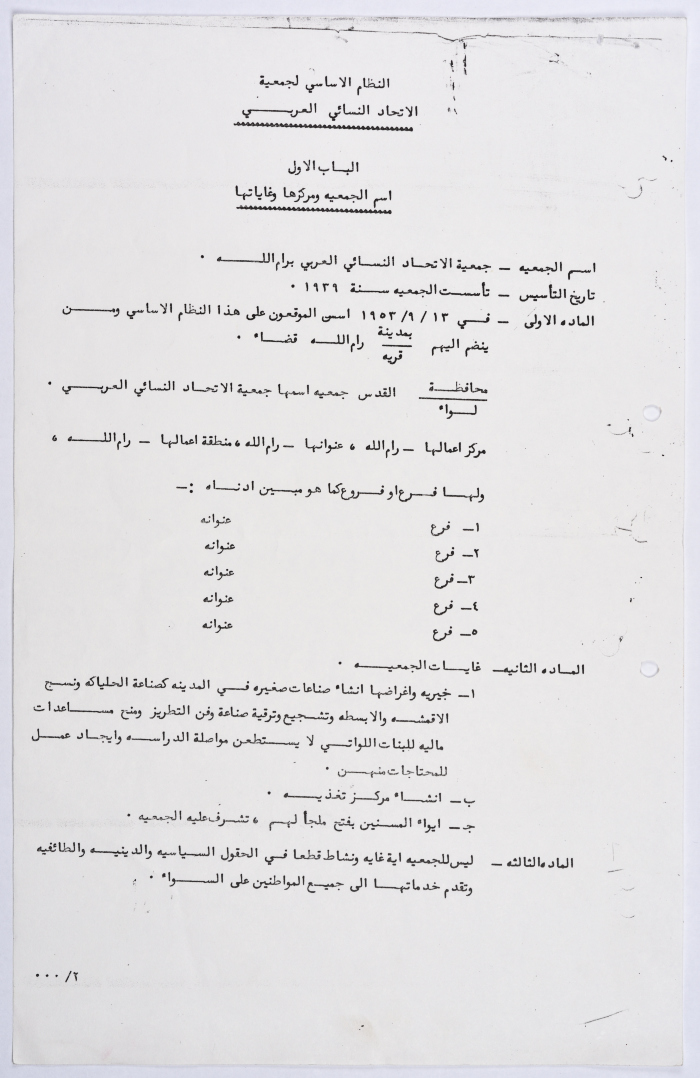 النظام الاساسي لجمعية
الاتحاد النسائي العربـــي
الباب الاول
اسم الجمعيه ومركزها وغاياتها
اسـم الجمعيه – جمعية الاتحاد النسائي العربي برام اللـــه .
تاريخ التأسيس – تأسست الجمعيه سنة ١٩٣٩ .
الماده الاولى – فـي ١٣ / ٩ / ١٩٥٣ اسس الموقعون على هذا النظام الاساسي ومــن
ينضم اليهم بمدينة رام اللــه قضـاء .
قريه
محافظــة القدس جمعيه اسمها جمعية الاتحاد النسائي العربــي .
لــواء
مركز اعمالها – رام الله ، عنوانها – رام الله ، منطقة اعمالها – رام اللـــه ،
ولهـا فـرع او فـروع كما هو مبـين ادنـاه :–
١– فرع عنوانه
٢– فرع عنوانه
٣– فرع عنوانه
٤– فرع عنوانه
٥– فرع عنوانه
المـاده الثانيه – غايـات الجمعيــه .
١– خيريه واغراضها انشاء صناعات صغيره فـي المدينه كصناعة الحلياكه ونسج
الاقمشـه والابسطه وتشجيع وترقية صناعة وفن التطريز ومنح مسـاعدات
ماليه للبنات اللواتـي لا يسـتطعن مواصلة الدراسـه وايجاد عمـل
للمحتاجات منهـن .
ب– انشـاء مركز تغذيـــه .
جـ– ايواء المسنين بفتح ملجأ لهـم ، تشرف عليه الجمعيه .
الماده الثالثه – ليس للجمعيه اية غايه ونشاط قطعا فـي الحقول السياسيه والدينيـه والطائفيه
وتقدم خدماتهـا الى جميع المواطنين على السـواء .
٢/ ...